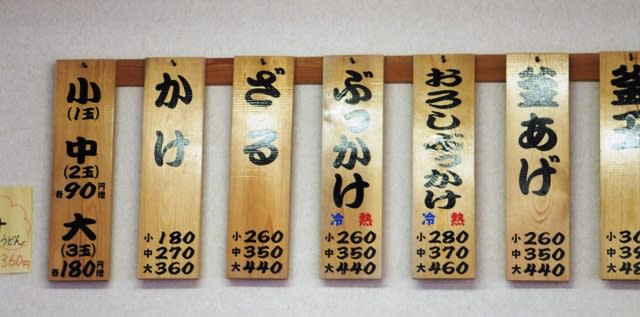 小
(1玉)
中
(2玉)
各90円増
大
(3玉)
各180円増
かけ
小 180
中 270
大 360
ざる
小 260
中 350
大 440
ぶっかけ
冷 熱
小 260
中 350
大 460
おろしぶっかけ
冷 熱
小 280
中 370
大 460
釜あげ
小 260
中 350
大 440
釜玉
小 3
中 39
大 4
うどん
360円